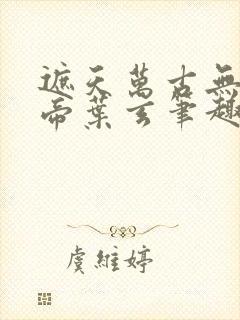 遮天萬古無
帝葉玄筆趣
虞維婷